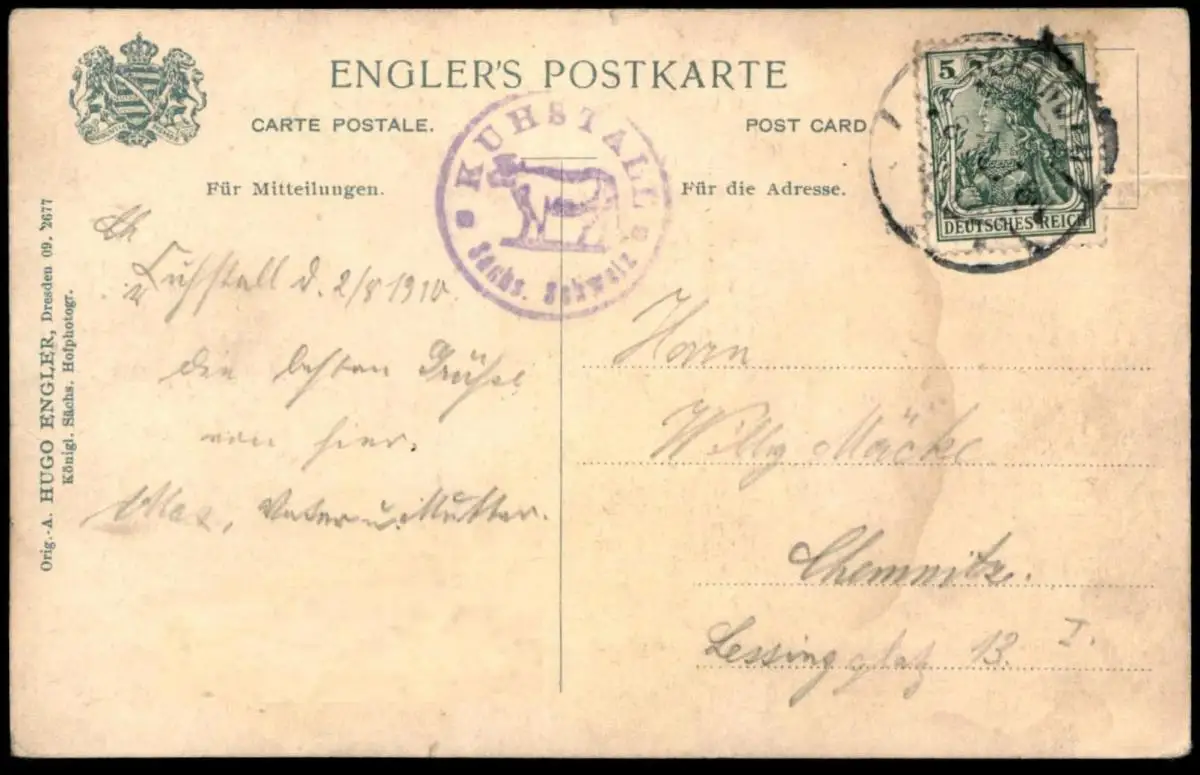 ENGLER'S POSTKARTE
CARTE POSTALE.
POST CARD
Für Mitteilungen.
Für die Adresse.
KUHSTALL
Sächs. Schweiz
5
DEUTSCHES REICH
Orig.-A. HUGO ENGLER, Dresden 09. 2677
Königl. Sächs. Hofphotogr.
Kuhstall d. 2/8 1910.
die besten Grüße
von hier.
Max, Vater u. Mutter.
Herrn
Willy Mäcke
Chemnitz.
Lessingplatz 13. I.